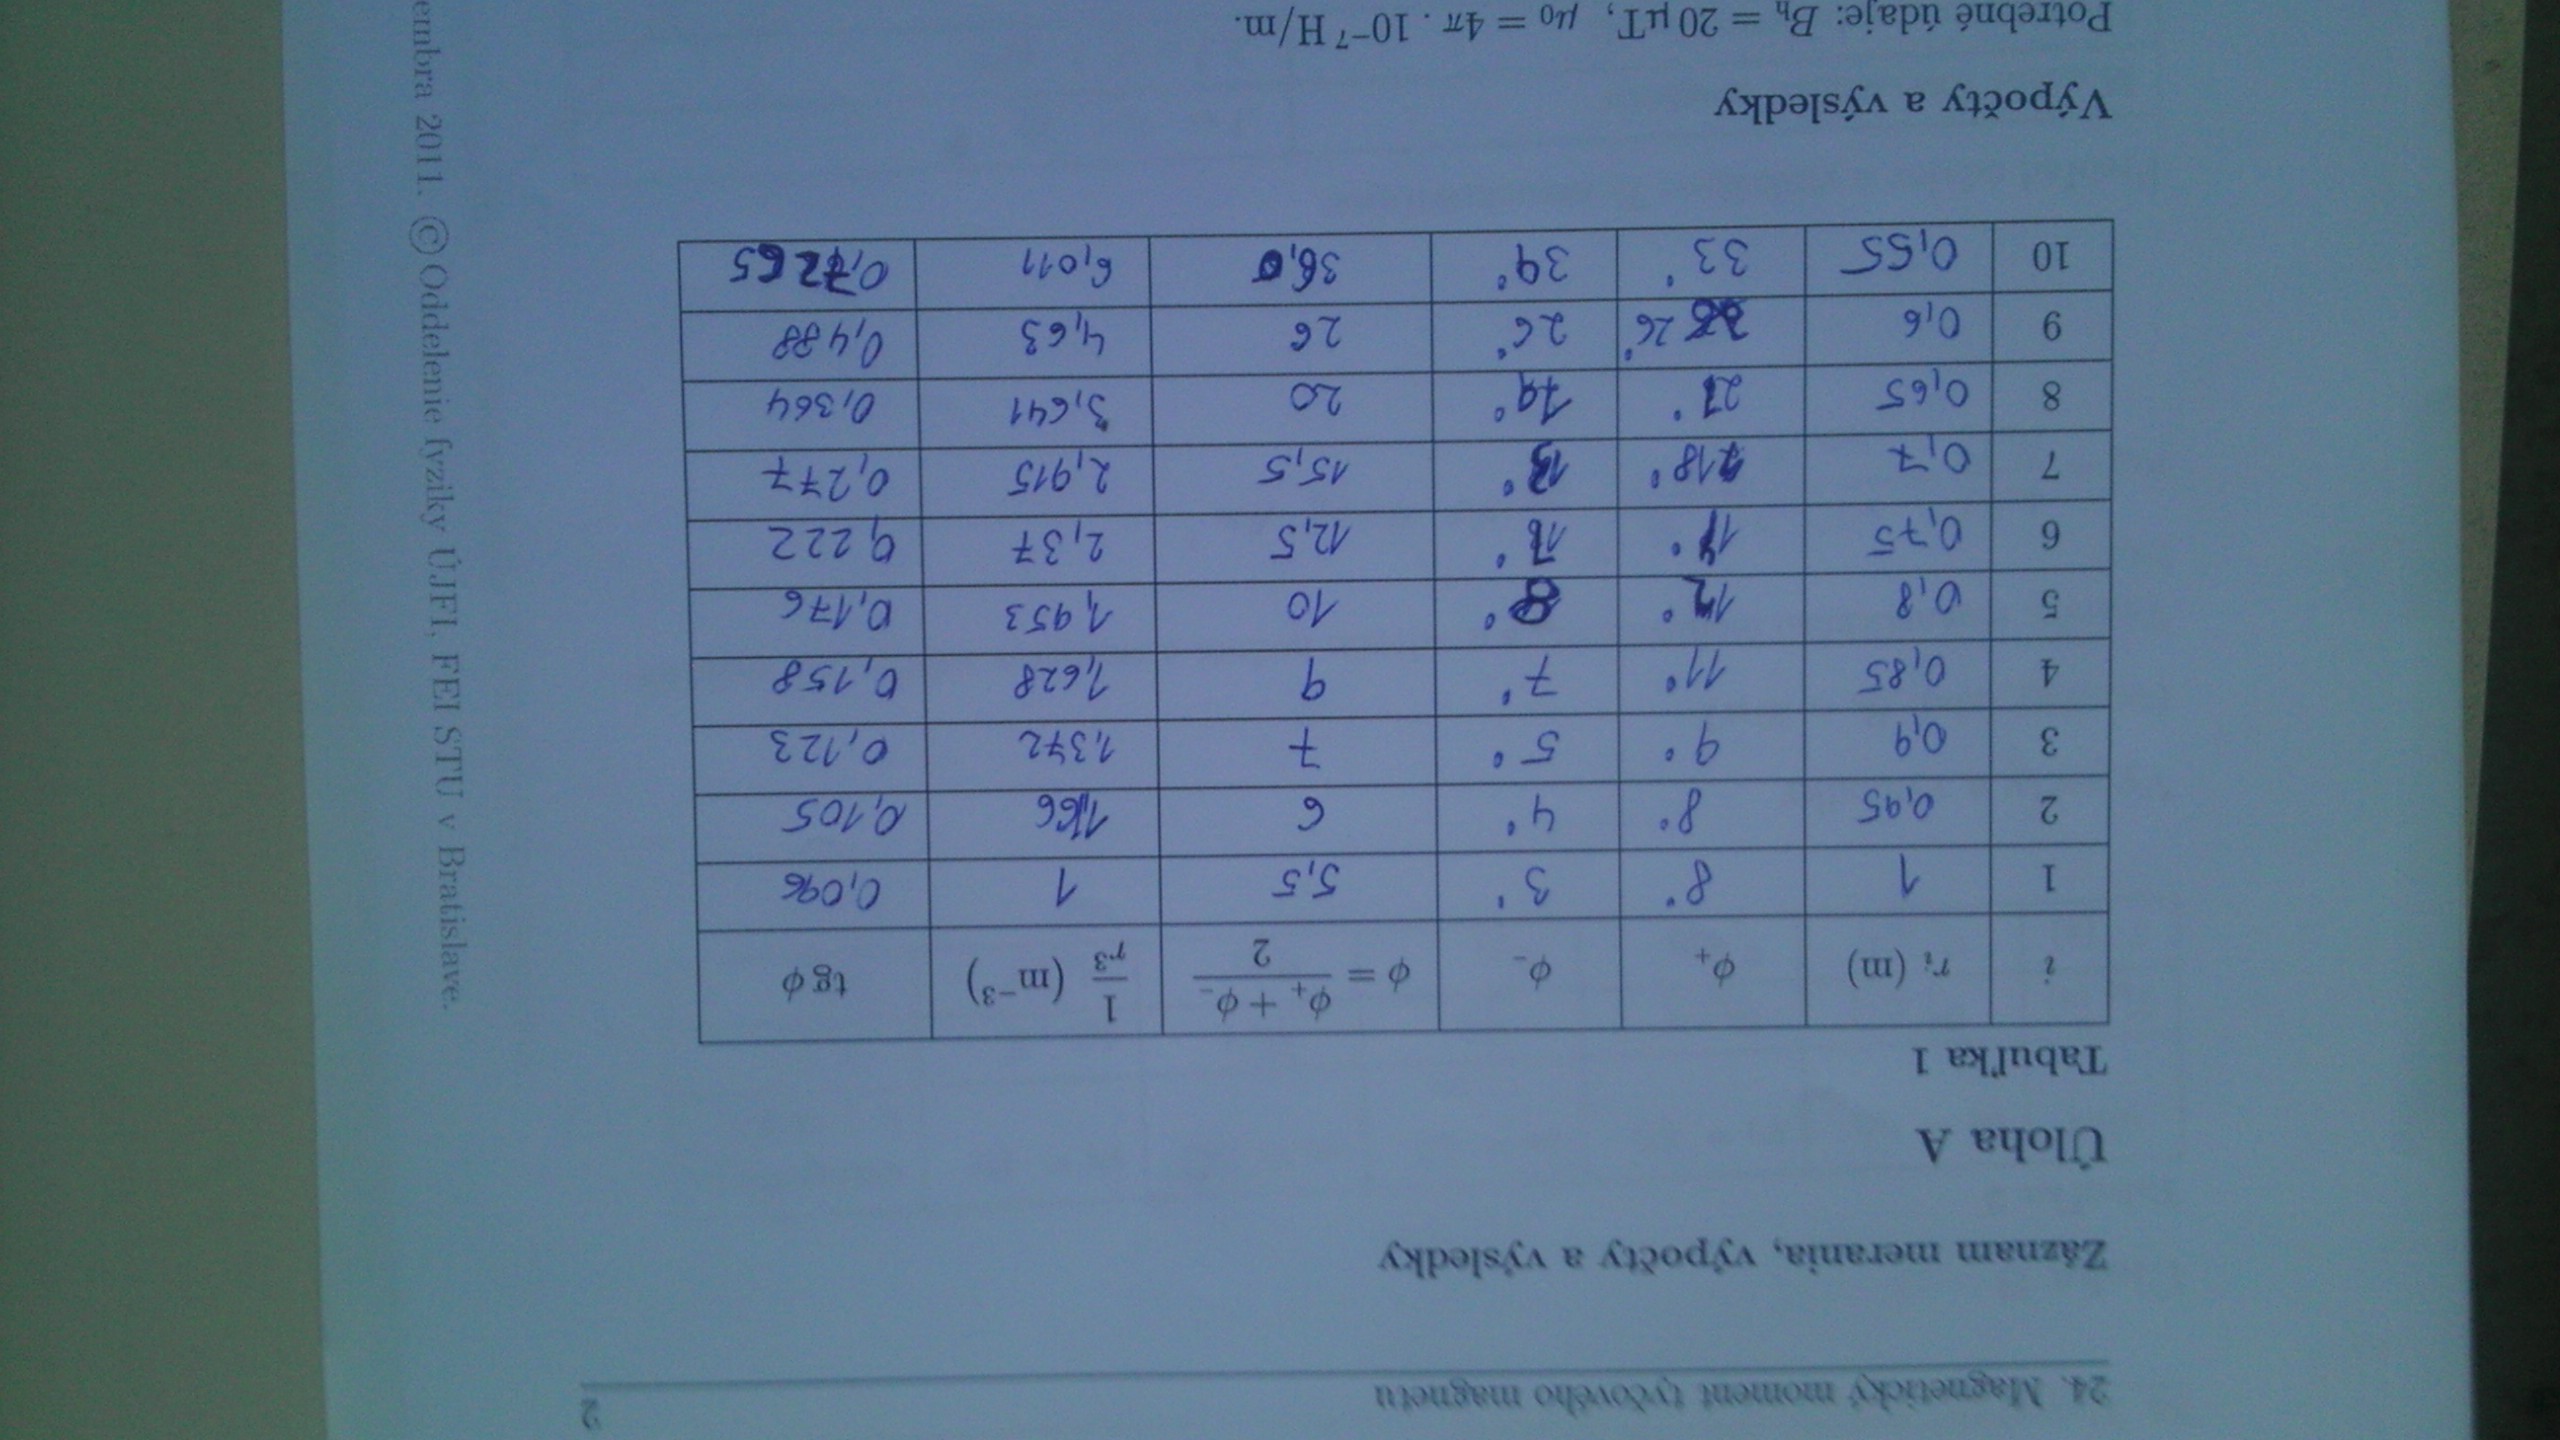 24. Magnetický moment tyčového magnetu 2
Záznam merania, výpočty a výsledky
Úloha A
Tabuľka 1
i r_i (m) ϕ₊ ϕ₋ ϕ = (ϕ₊ + ϕ₋)/2 1/r³ (m⁻³) tg ϕ
1 1 8° 3° 5,5 1 0,096
2 0,95 8° 4° 6 1,166 0,105
3 0,9 9° 5° 7 1,372 0,123
4 0,85 11° 7° 9 1,628 0,158
5 0,8 12° 8° 10 1,953 0,176
6 0,75 12,5 2,37 0,222
7 0,7 18° 13° 15,5 2,915 0,277
8 0,65 21° 19° 20 3,641 0,364
9 0,6 26° 26° 26 4,63 0,488
10 0,55 33° 39° 36,0 6,011 0,7265
Výpočty a výsledky
Potrebné údaje: B_h = 20 μT, μ₀ = 4π . 10⁻⁷ H/m.
embra 2011. © Oddelenie fyziky ÚJFI, FEI STU v Bratislave.